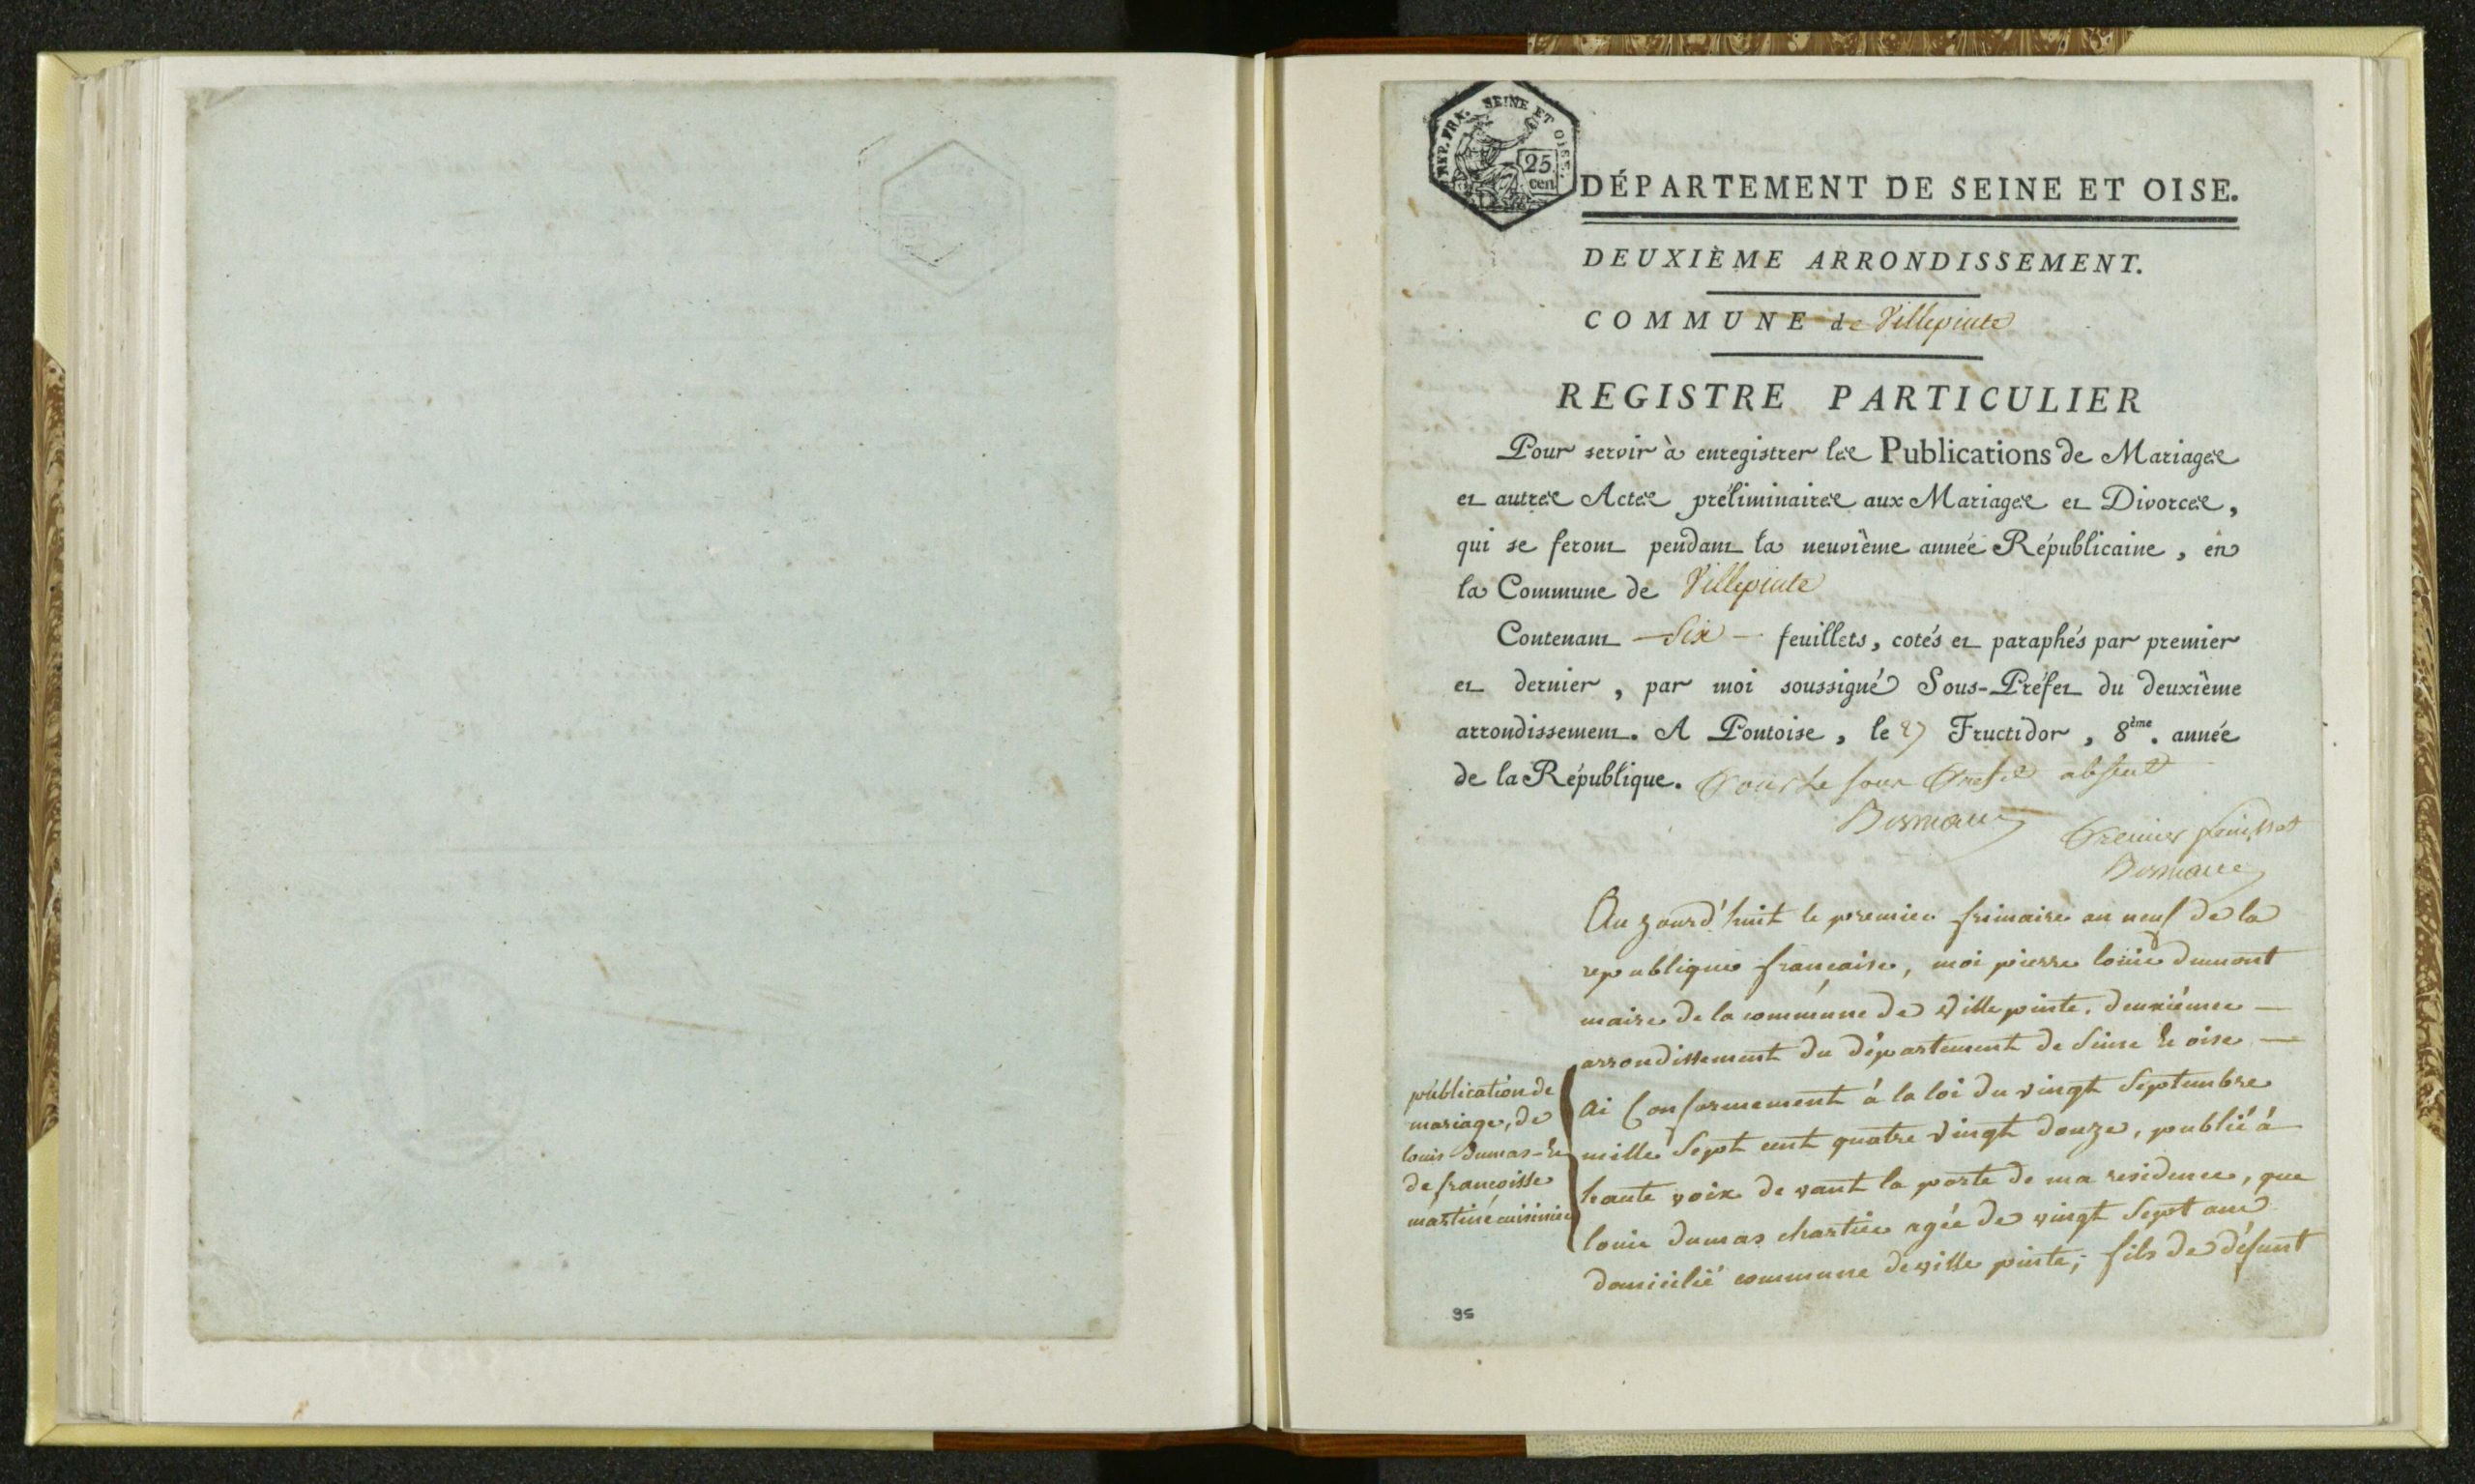 REP. FRA. SEINE ET OISE.
25
cen
DÉPARTEMENT DE SEINE ET OISE.
DEUXIÈME ARRONDISSEMENT.
COMMUNE de Villepinte
REGISTRE PARTICULIER
Pour servir à enregistrer les Publications de Mariages
et autres Actes préliminaires aux Mariages et Divorces,
qui se feront pendant la neuvième année Républicaine, en
la Commune de Villepinte
Contenant — Six — feuillets, cotés et paraphés par premier
et dernier, par moi soussigné Sous-Préfet du deuxième
arrondissement. A Pontoise, le 27 Fructidor, 8ème. année
de la République. Pour le sous Prefet absent
Premier feuillet
Au jourd'huit le premier frimaire an neuf de la
republique francaise, moi pierre louis dumont
maire de la commune de Ville pinte, deuxiémee —
arrondissement du département de Seine et oise —
publication de
mariage, de
louis dumas - et
de francoisse
martine cuisinier
ai Conformement á la loi du vingt Septembre
mille Sept cent quatre vingt douze, publié á
haute voix de vant la porte de ma residence, que
louis dumas chartier agée de vingt Sept ans
domicilié commune de ville pinte; fils de défunt
95